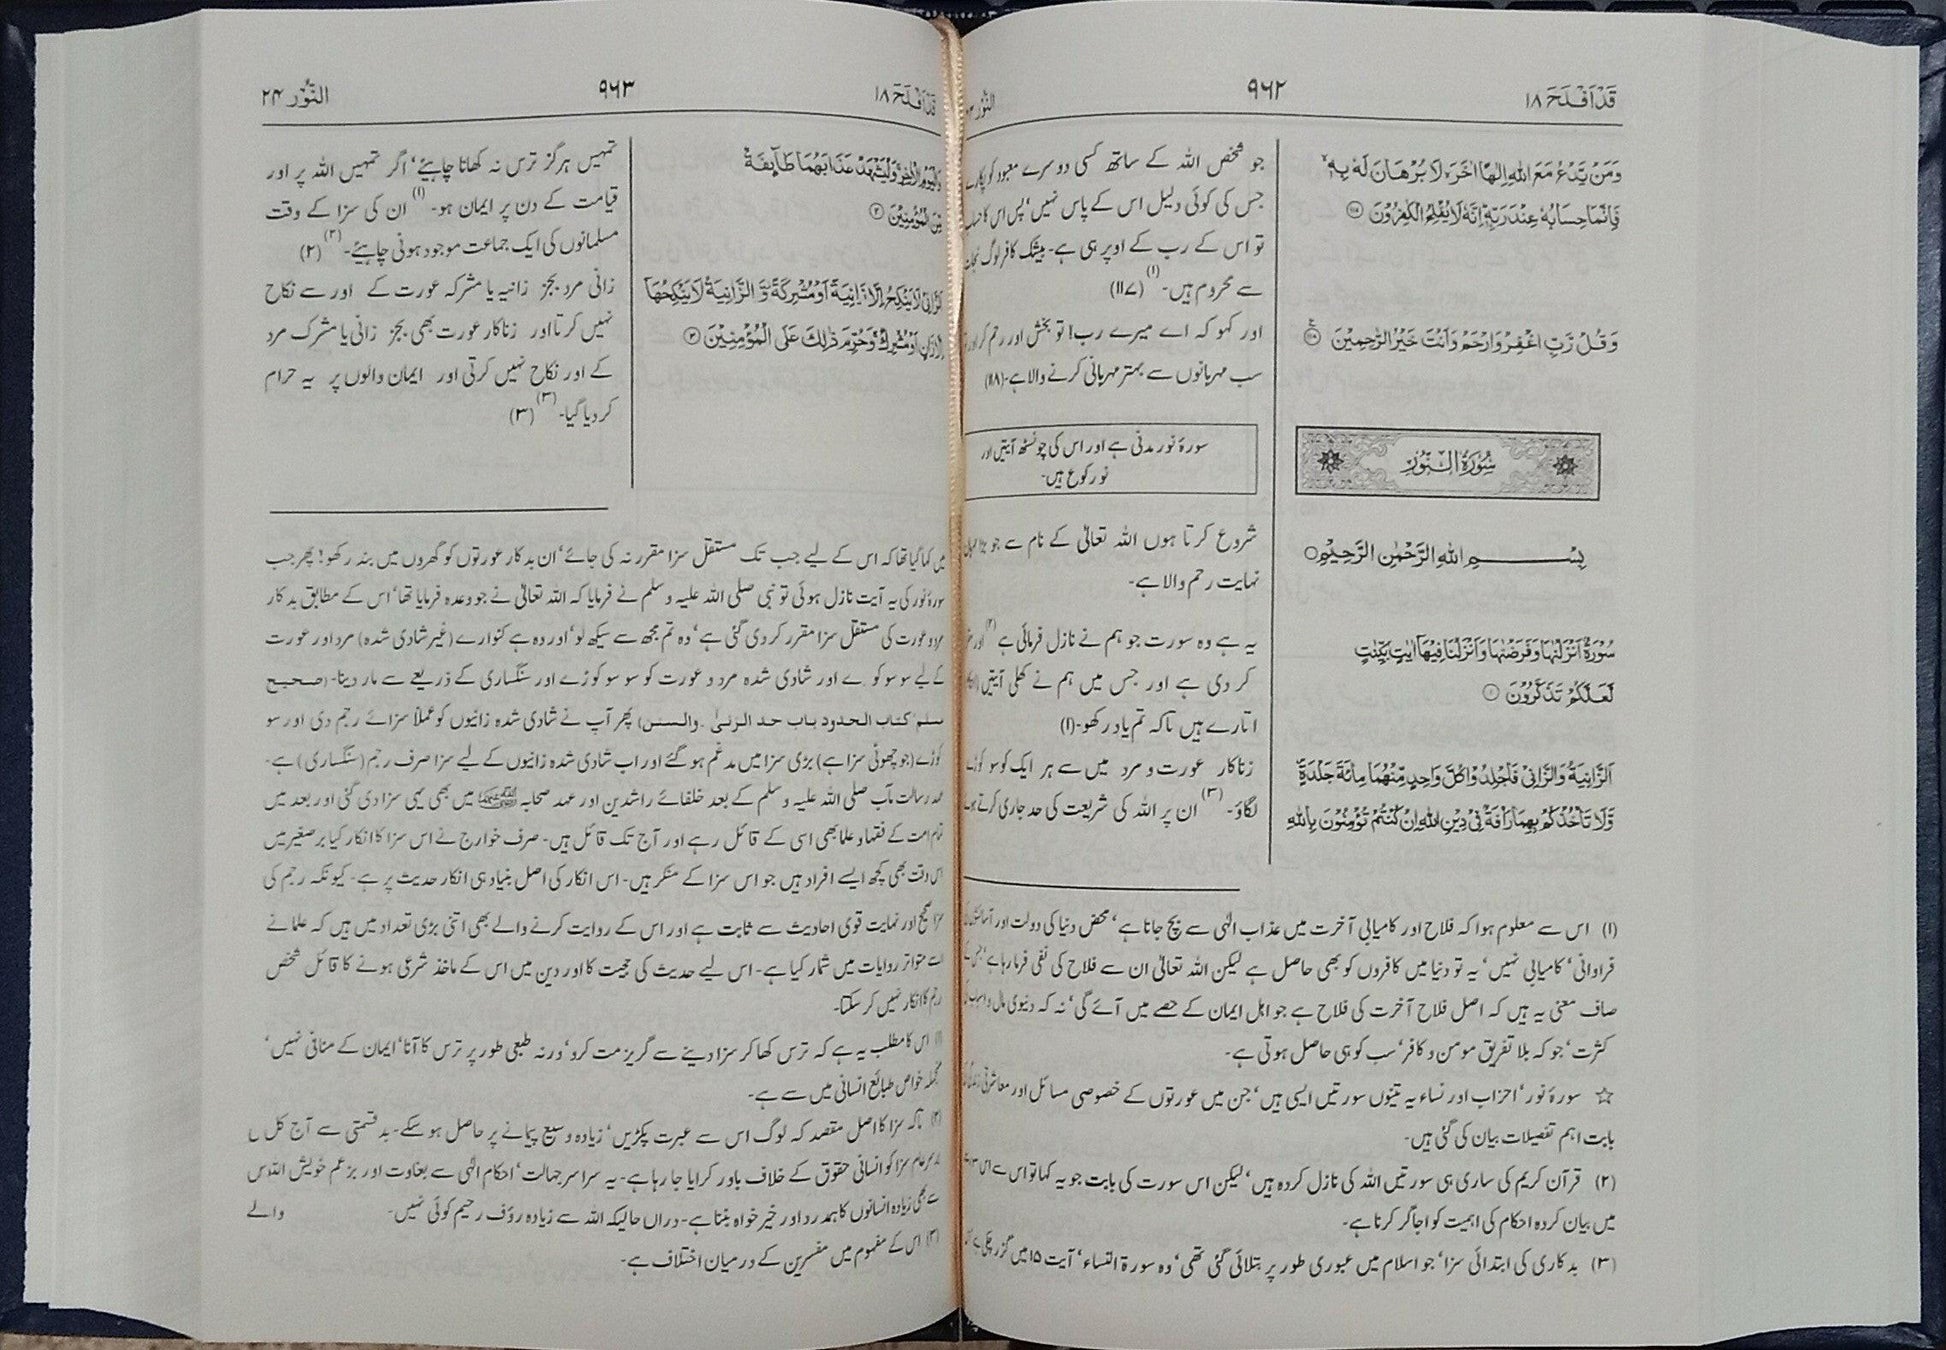 قَدْ اَفْلَحَ ١٨
٩٦٢
النُّوْر
وَمَنْ يَّدْعُ مَعَ اللّٰهِ اِلٰهًا اٰخَرَ لَا بُرْهَانَ لَهٗ بِهٖ
فَاِنَّمَا حِسَابُهٗ عِنْدَ رَبِّهٖ اِنَّهٗ لَا يُفْلِحُ الْكٰفِرُوْنَ ۝
وَقُلْ رَّبِّ اغْفِرْ وَارْحَمْ وَاَنْتَ خَيْرُ الرّٰحِمِيْنَ ۝
سُوْرَةُ النُّوْرِ
بِسْمِ اللّٰهِ الرَّحْمٰنِ الرَّحِيْمِ ○
سُوْرَةٌ اَنْزَلْنٰهَا وَفَرَضْنٰهَا وَاَنْزَلْنَا فِيْهَآ اٰيٰتٍۢ بَيِّنٰتٍ
لَّعَلَّكُمْ تَذَكَّرُوْنَ ۝
اَلزَّانِيَةُ وَالزَّانِيْ فَاجْلِدُوْا كُلَّ وَاحِدٍ مِّنْهُمَا مِائَةَ جَلْدَةٍ
وَّلَا تَاْخُذْكُمْ بِهِمَا رَاْفَةٌ فِيْ دِيْنِ اللّٰهِ اِنْ كُنْتُمْ تُؤْمِنُوْنَ بِاللّٰهِ
جو شخص اللہ کے ساتھ کسی دوسرے معبود کو پکارے
جس کی کوئی دلیل اس کے پاس نہیں‘ پس اس کا حساب
تو اس کے رب کے اوپر ہی ہے۔ بیشک کافر لوگ نجات
سے محروم ہیں۔(۱) (۱۱۷)
اور کہو کہ اے میرے رب! تو بخش اور رحم کر اور
سب مہربانوں سے بہتر مہربانی کرنے والا ہے۔(۱۱۸)
سورۂ نور مدنی ہے اور اس کی چونسٹھ آیتیں اور
نو رکوع ہیں۔
شروع کرتا ہوں اللہ تعالیٰ کے نام سے جو بڑا مہربان
نہایت رحم والا ہے۔
یہ ہے وہ سورت جو ہم نے نازل فرمائی ہے(۲) اور
کر دی ہے اور جس میں ہم نے کھلی آیتیں
اتارے ہیں تاکہ تم یاد رکھو۔(۱)
زناکار عورت و مرد میں سے ہر ایک کو سو کوڑے
لگاؤ۔(۳) ان پر اللہ کی شریعت کی حد جاری کرتے ہوئے
(۱) اس سے معلوم ہوا کہ فلاح اور کامیابی آخرت میں عذاب الٰہی سے بچ جانا ہے‘ محض دنیا کی دولت اور
فراوانی‘ کامیابی نہیں‘ یہ تو دنیا میں کافروں کو بھی حاصل ہے لیکن اللہ تعالیٰ ان سے فلاح کی نفی فرما رہا ہے‘
صاف معنی یہ ہیں کہ اصل فلاح آخرت کی فلاح ہے جو اہل ایمان کے حصے میں آئے گی‘ نہ کہ دنیوی مال و اسباب کی
کثرت‘ جو کہ بلا تفریق مومن و کافر‘ سب کو ہی حاصل ہوتی ہے۔
☆ سورۂ نور‘ احزاب اور نساء یہ تینوں سورتیں ایسی ہیں‘ جن میں عورتوں کے خصوصی مسائل اور معاشرتی
بابت اہم تفصیلات بیان کی گئی ہیں۔
(۲) قرآن کریم کی ساری ہی سورتیں اللہ کی نازل کردہ ہیں‘ لیکن اس سورت کی بابت جو یہ کہا تو اس سے اس
میں بیان کردہ احکام کی اہمیت کو اجاگر کرنا ہے۔
(۳) بدکاری کی ابتدائی سزا‘ جو اسلام میں عبوری طور پر بتلائی گئی تھی‘ وہ سورۃ النساء‘ آیت ۱۵ میں گزر چکی ہے
قَدْ اَفْلَحَ ١٨
٩٦٣
النُّوْر ٢٤
وَالْيَوْمِ الْاٰخِرِ وَلْيَشْهَدْ عَذَابَهُمَا طَآئِفَةٌ
مِّنَ الْمُؤْمِنِيْنَ ۝
اَلزَّانِيْ لَا يَنْكِحُ اِلَّا زَانِيَةً اَوْ مُشْرِكَةً وَّالزَّانِيَةُ لَا يَنْكِحُهَآ
اِلَّا زَانٍ اَوْ مُشْرِكٌ وَحُرِّمَ ذٰلِكَ عَلَى الْمُؤْمِنِيْنَ ۝
تمہیں ہرگز ترس نہ کھانا چاہیئے‘ اگر تمہیں اللہ پر اور
قیامت کے دن پر ایمان ہو۔(۱) ان کی سزا کے وقت
مسلمانوں کی ایک جماعت موجود ہونی چاہیئے۔(۲) (۲)
زانی مرد بجز زانیہ یا مشرکہ عورت کے اور سے نکاح
نہیں کرتا اور زناکار عورت بھی بجز زانی یا مشرک مرد
کے اور نکاح نہیں کرتی اور ایمان والوں پر یہ حرام
کر دیا گیا۔(۳) (۳)
میں کہا گیا تھا کہ اس کے لیے جب تک مستقل سزا مقرر نہ کی جائے‘ ان بدکار عورتوں کو گھروں میں بند رکھو! پھر جب
سورۂ نور کی یہ آیت نازل ہوئی تو نبی صلی اللہ علیہ و سلم نے فرمایا کہ اللہ تعالیٰ نے جو وعدہ فرمایا تھا‘ اس کے مطابق بدکار
مرد و عورت کی مستقل سزا مقرر کر دی گئی ہے‘ وہ تم مجھ سے سیکھ لو‘ اور وہ ہے کنوارے (غیر شادی شدہ) مرد اور عورت
کے لیے سو سو کوڑے اور شادی شدہ مرد و عورت کو سو سو کوڑے اور سنگساری کے ذریعے سے مار دینا۔ (صحیح
مسلم‘ کتاب الحدود باب حد الزنیٰ۔ والسنن) پھر آپ نے شادی شدہ زانیوں کو عملاً سزائے رجم دی اور سو
کوڑے (جو چھوٹی سزا ہے) بڑی سزا میں مدغم ہو گئے اور اب شادی شدہ زانیوں کے لیے سزا صرف رجم (سنگساری) ہے۔
عہد رسالت مآب صلی اللہ علیہ و سلم کے بعد خلفائے راشدین اور عہد صحابہ میں بھی یہی سزا دی گئی اور بعد میں
تمام امت کے فقہا و علما بھی اسی کے قائل رہے اور آج تک قائل ہیں۔ صرف خوارج نے اس سزا کا انکار کیا برصغیر میں
اس وقت بھی کچھ ایسے افراد ہیں جو اس سزا کے منکر ہیں۔ اس انکار کی اصل بنیاد ہی انکار حدیث پر ہے۔ کیونکہ رجم کی
سزا صحیح اور نہایت قوی احادیث سے ثابت ہے اور اس کے روایت کرنے والے بھی اتنی بڑی تعداد میں ہیں کہ علما نے
اسے متواتر روایات میں شمار کیا ہے۔ اس لیے حدیث کی حجیت کا اور دین میں اس کے ماخذ شرعی ہونے کا قائل شخص
رجم کا انکار نہیں کر سکتا۔
(۱) اس کا مطلب یہ ہے کہ ترس کھا کر سزا دینے سے گریز مت کرو‘ ورنہ طبعی طور پر ترس کا آنا‘ ایمان کے منافی نہیں‘
منجملہ خواص طبائع انسانی میں سے ہے۔
(۲) تاکہ سزا کا اصل مقصد کہ لوگ اس سے عبرت پکڑیں‘ زیادہ وسیع پیمانے پر حاصل ہو سکے۔ بدقسمتی سے آج کل
سزا کو انسانی حقوق کے خلاف باور کرایا جا رہا ہے۔ یہ سراسر جہالت‘ احکام الٰہی سے بغاوت اور بزعم خویش اللہ سے
بھی زیادہ انسانوں کا ہمدرد اور خیر خواہ بننا ہے۔ دراں حالیکہ اللہ سے زیادہ رؤف رحیم کوئی نہیں۔
(۳) اس کے مفہوم میں مفسرین کے درمیان اختلاف ہے۔